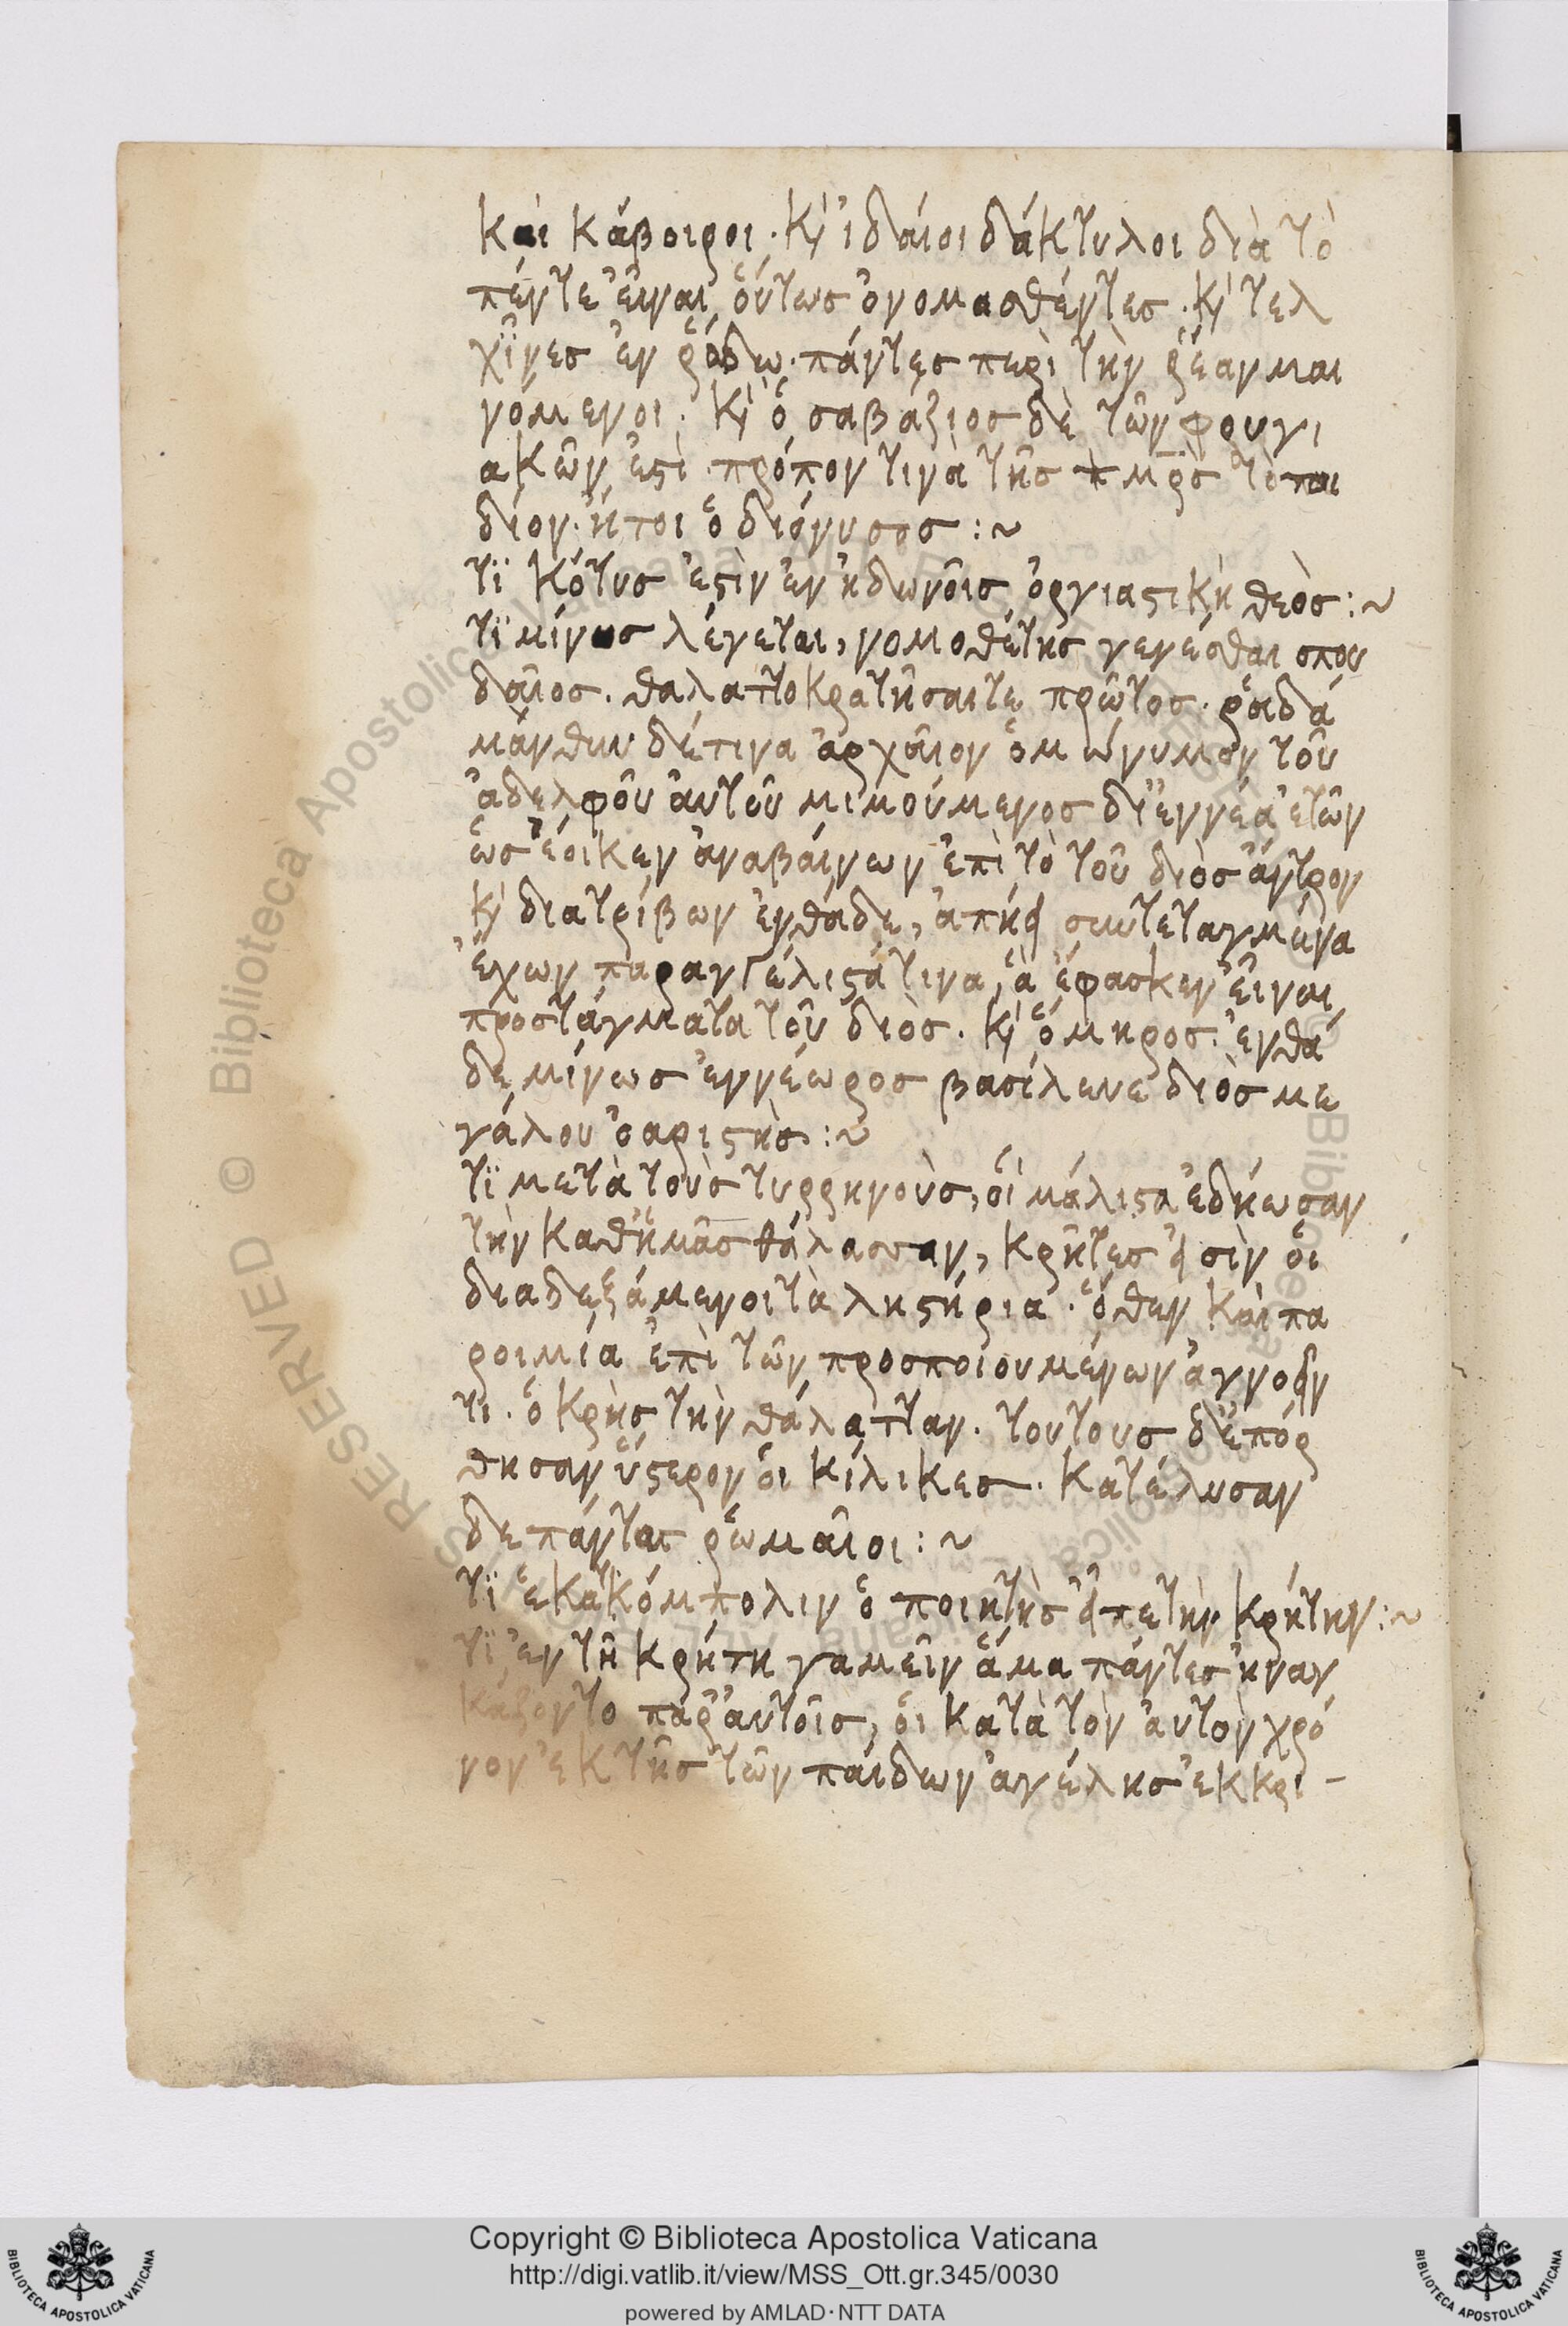 καὶ κάβοιροι· κ̀ ἰδαίοι δάκτυλοι διὰ τὸ
πέντε εἶναι οὕτως ὀνομασθέντες· κ̀ τελ
χῖνες ἐν ῥόδω· πάντες περὶ τὴν ῥέαν μαι
νόμενοι· κ̀ ὁ σαβάζιος δὲ τῶν φρυγι
ακῶν ἐστὶ πρόπον τινὰ τῆς μρ̅ς τὸ παι
δίον· ἤτοι ὁ διόνυσος :~
τϊ κότυς ἐστὶν ἐν ἠδωνοῖς ὀργιαστικὴ θεὸς :~
τϊ μίνως λέγεται, νομοθέτης γενέσθαι σπου
δαῖος. θαλαττοκρατῆσαι τε πρῶτος· ῥαδά
μανθυν δέ τινα ἀρχαῖον ὁμώνυμον τοῦ
ἀδελφοῦ αὐτοῦ μιμούμενος δι' ἐννέα ἐτῶν
ὡς ἔοικεν ἀναβαίνων ἐπὶ τὸ τοῦ διὸς ἄντρον
κ̀ διατρίβων ἐνθάδε, ἀπήει συντεταγμένα
ἔχων παραγγέλιστά τινα, ἃ ἔφασκεν εἶναι
προστάγματα τοῦ διὸς. κ̀ ὅμηρος· ἐνθά
δε μίνως ἐννέωρος βασίλευε διὸς με
γάλου ὀαριστὴς :~
τϊ μετὰ τοὺς τυρρηνοὺς, οἳ μάλιστα ἐδήωσαν
τὴν καθ' ἡμᾶς θάλασσαν, κρῆτες εἰσὶν οἱ
διαδεξάμενοι τὰ ληστήρια· ὅθεν καὶ πα
ροιμία ἐπὶ τῶν προσποιουμένων ἀγνοεῖν
τι. ὁ κρὴς τὴν θάλατταν. τούτους δ' ἐπόρ
θησαν ὕστερον οἱ κίλικες. κατέλυσαν
δε πάντας ῥωμαῖοι :~
τϊ ἑκατκόμπολιν ὁ ποιητὴς εἶπε τὴν κρήτην :~
τϊ ἐν τῆ κρήτη γαμεῖν ἅμα πάντες ἠναγ
κάζοντο παρ' αὐτοῖς, οἱ κατὰ τὸν αὐτὸν χρό
νον ἐκ τῆς τῶν παίδων ἀγέλης ἐκκρι-
Copyright © Biblioteca Apostolica Vaticana
http://digi.vatlib.it/view/MSS_Ott.gr.345/0030
powered by AMLAD·NTT DATA